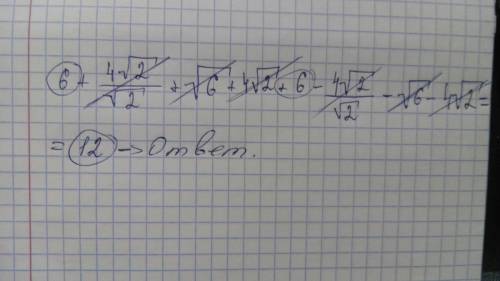 6 + 4√2/√2 + √6 + 4√2 + 6 - 4√2/√2 - √6 - 4√2 =
= 12 → Ответ.